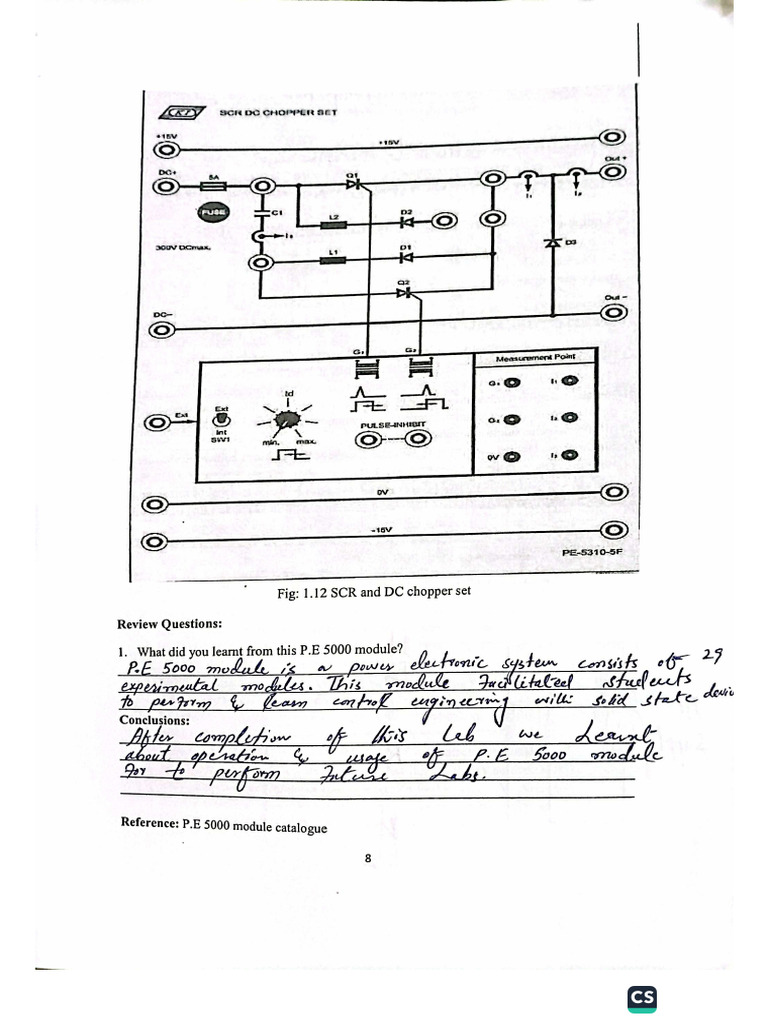 K&H SCR DC CHOPPER SET
+15V +15V
DC+ 5A Q1 Out +
FUSE C1 L2 D2 I1 I2
I3
300V DCmax. L1 D1 D3
Q2
DC− Out −
G1 G2 Measurement Point
G1 I1
Ext Ext td
Int PULSE-INHIBIT G2 I2
SW1 min. max.
0V I3
0V
-15V
PE-5310-5F
Fig: 1.12 SCR and DC chopper set
Review Questions:
1. What did you learnt from this P.E 5000 module?
P.E 5000 module is a power electronic system consists of 29
experimental modules. This module Facilitated students
to perform & learn control engineering with solid state devic
Conclusions:
After completion of this lab we Learnt
about operation & usage of P.E 5000 module
For to perform Future Labs.
Reference: P.E 5000 module catalogue
8
CS